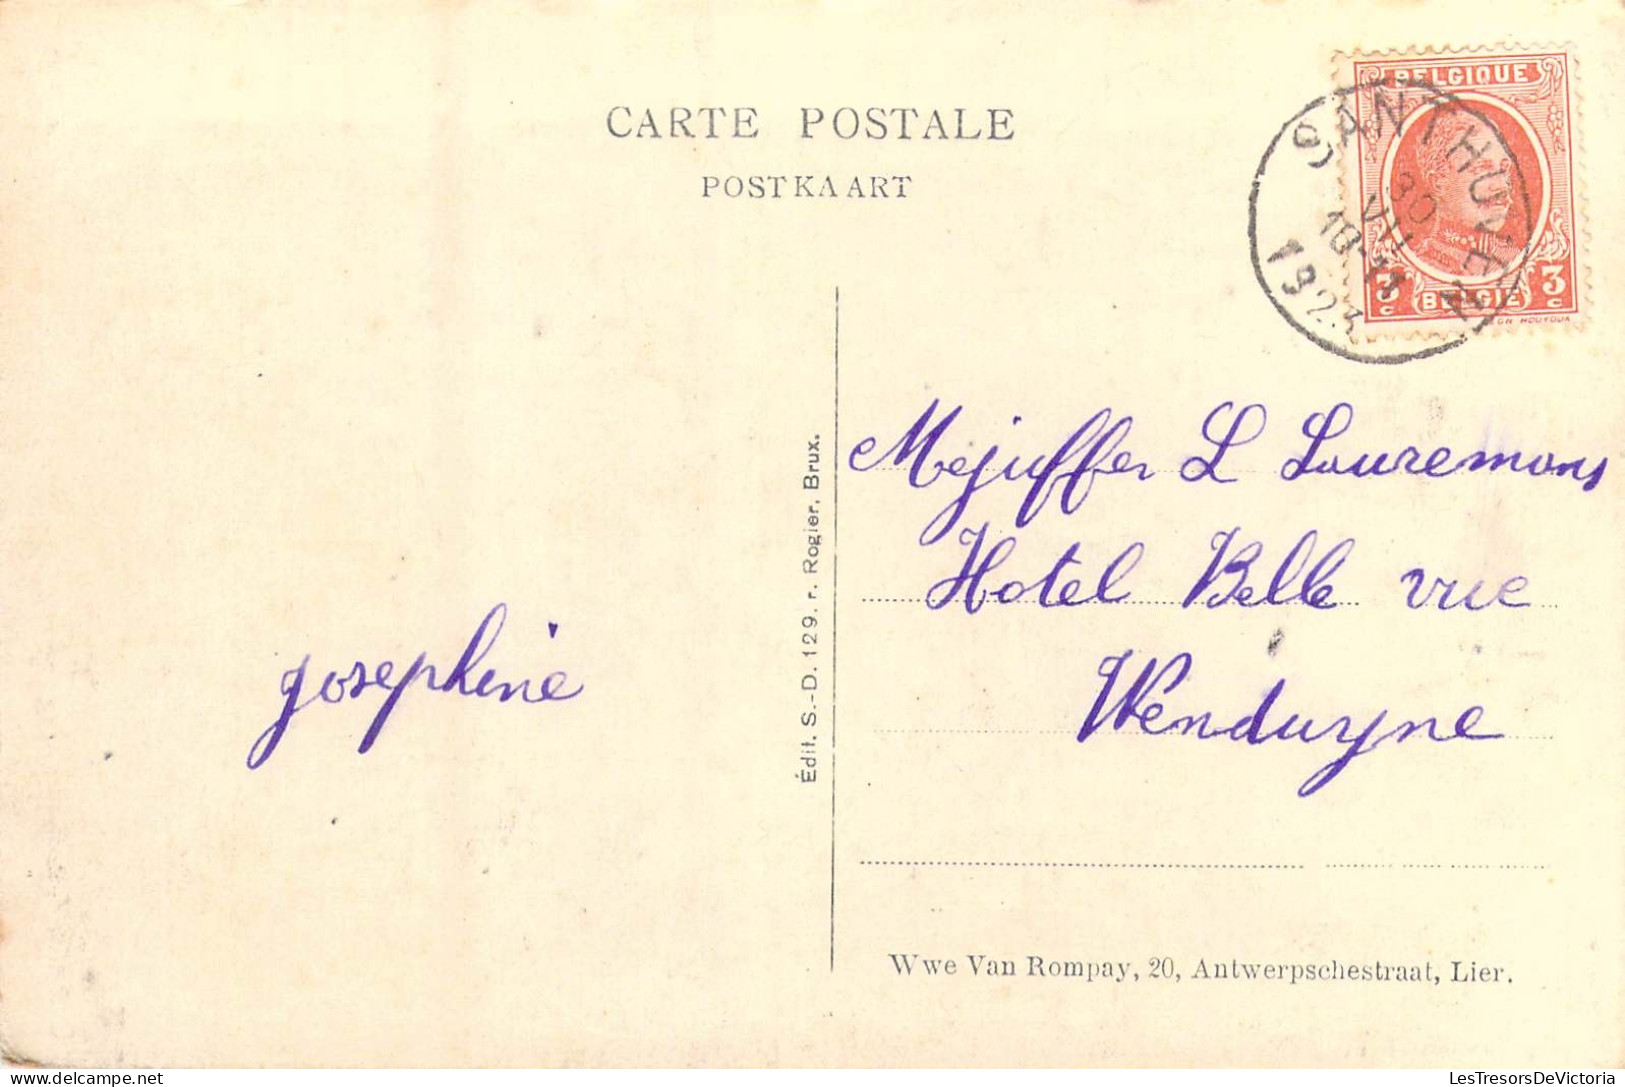 CARTE POSTALE
POSTKAART
BELGIQUE
3 c 3 c
BELGIE
SANTHOVEN
30
VII
1923
Édit. S.-D. 129. r. Rogier. Brux.
Mejuffer L Lauremans
Hotel Belle vue
Wenduyne
Josephine
Wwe Van Rompay, 20, Antwerpschestraat, Lier.
LesTresorsDeVictoria